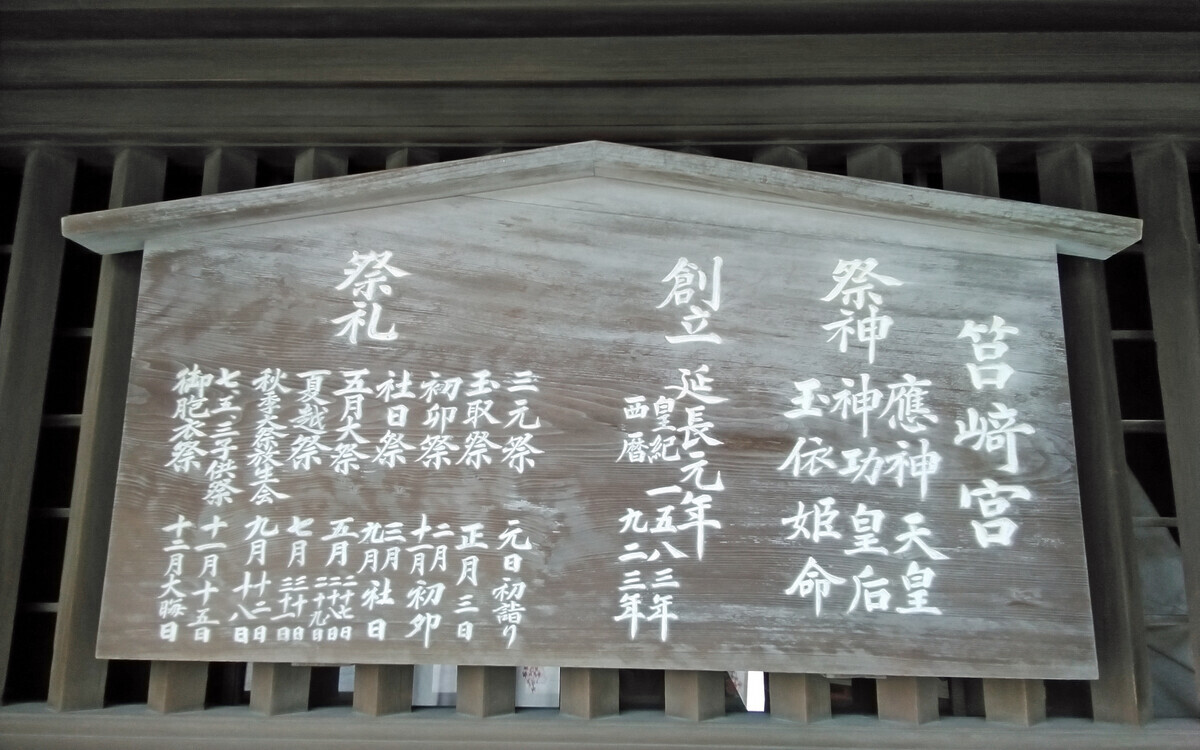 筥﨑宮
祭神
應神天皇
神功皇后
玉依姫命
創立
延長元年
皇紀一五八三年
西暦九二三年
祭礼
三元祭 元日初詣り
玉取祭 正月三日
初卯祭 二月十一月初卯
社日祭 三月九月社日
五月大祭 五月二十七日二十八日二十九日
夏越祭 七月三十日三十一日
秋季大祭放生会 九月十二日十八日
七五三子供祭 十一月十五日
御胞衣祭 十二月大晦日